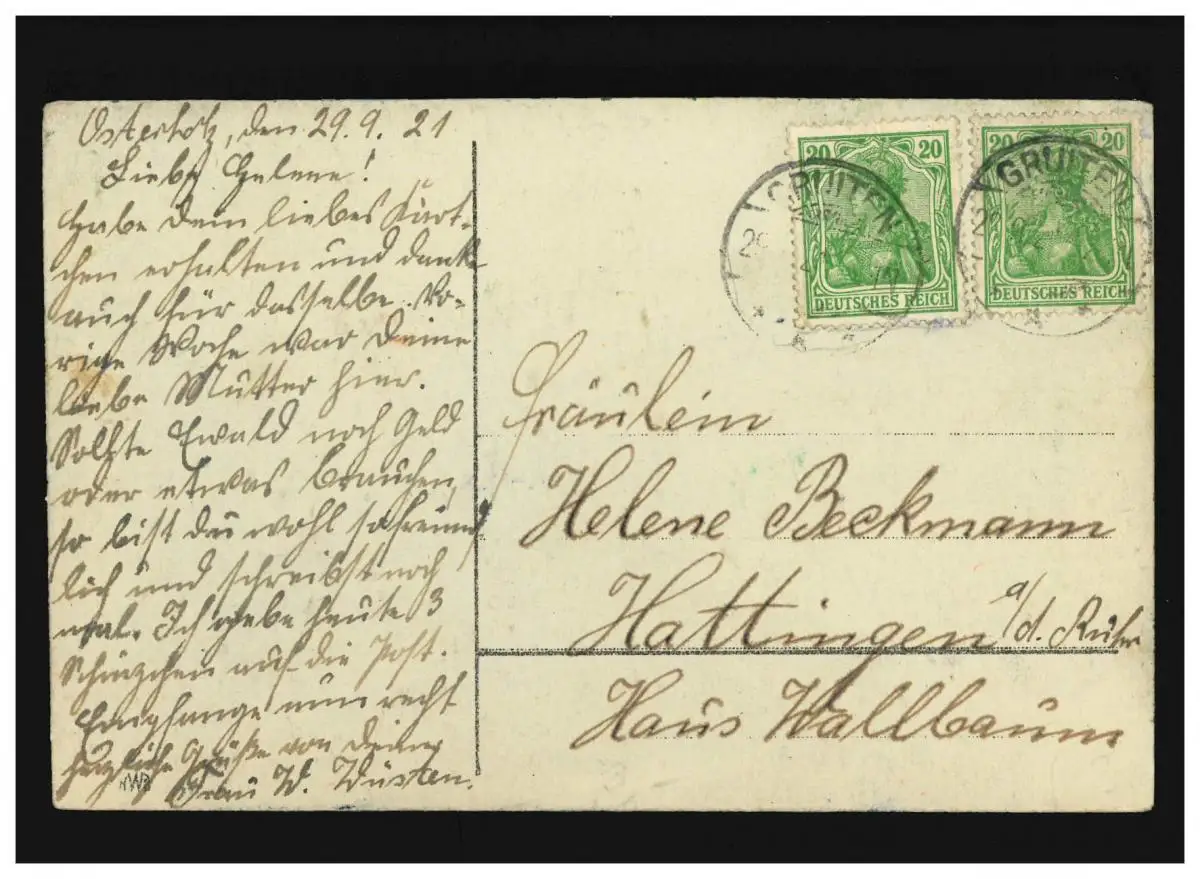 Osterholz, den 29.9.21
Liebe Helene!
Habe dein liebes Kärt-
chen erhalten und danke
auch für dasselbe. Vo-
rige Woche war deine
liebe Mutter hier.
Sollte Ewald noch Geld
oder etwas brauchen,
so bist du wohl so freund
lich und schreibst noch
mal. Ich gebe heute 3
auf die Post.
Empfange nun recht
herzliche Grüße von deiner
Frau W. Wüsten.
NWB
20 20
DEUTSCHES REICH
20 20
DEUTSCHES REICH
GRUITEN
GRUITEN
Fräulein
Helene Beckmann
Hattingen a/d. Ruhr
Haus Wallbaum